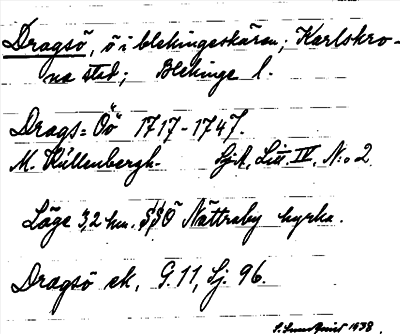 Dragsö, ö i blekingeskären; Karlskro-
na stad; Blekinge l.
Drags=Öö 1717-1747.
M. Küllenbergh. SjA, Litt. IV, N:o 2
Läge 3,2 km. S§Ö Nättraby kyrka.
Dragsö ek, G.11, Sj. 96.
1938.